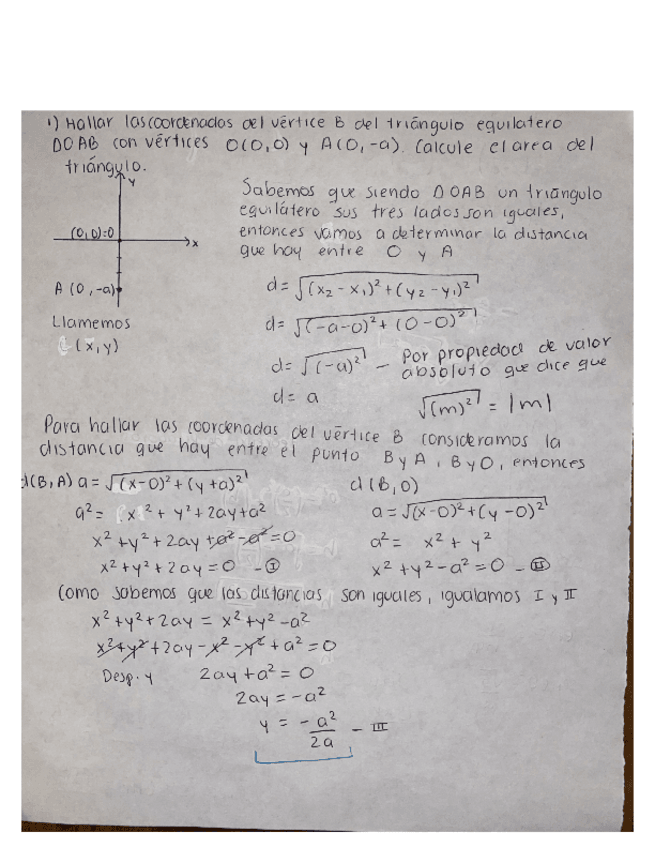 1) Hallar las coordenadas del vértice B del triángulo equilatero
ΔOAB con vértices O(0,0) y A(0,-a). Calcule el area del
triángulo.
y
(0,0)=0
x
A (0,-a)
Llamemos
(x,y)
Sabemos que siendo ΔOAB un triángulo
equilátero sus tres lados son iguales,
entonces vamos a determinar la distancia
que hay entre O y A
d= √(x₂-x₁)²+(y₂-y₁)²
d= √(-a-0)²+(0-0)²
d= √(-a)² — Por propiedad de valor
absoluto que dice que
d= a
√(m)² = |m|
Para hallar las coordenadas del vértice B consideramos la
distancia que hay entre el punto B y A, B y O, entonces
d(B,A) a= √(x-0)²+(y+a)²
a²= x²+y²+2ay+a²
x²+y²+2ay+a²-a²=0
x²+y²+2ay=0 - I
d(B,O)
a=√(x-0)²+(y-0)²
a²= x²+y²
x²+y²-a²=0 - II
Como sabemos que las distancias son iguales, igualamos I y II
x²+y²+2ay = x²+y²-a²
x²+y²+2ay-x²-y²+a²=0
Desp. y 2ay+a²=0
2ay=-a²
y = -a²/2a - III